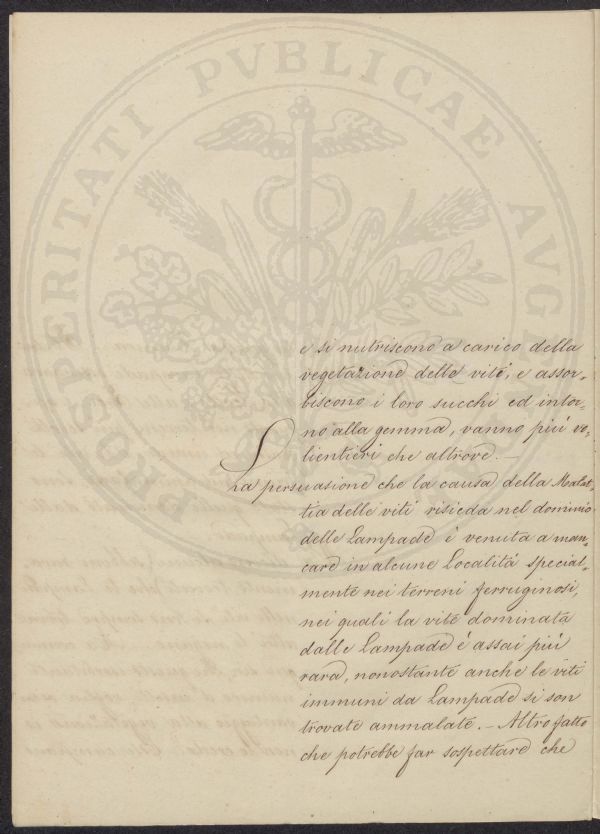 PROSPERITATI PVBLICAE AVGE
e si nutriscono a carico della
vegetazione delle viti, e assor-
biscono i loro succhi ed intor-
no alla gemma, vanno più vo-
lientieri che altrove. —
La persuasione che la causa della Malat-
tia delle viti risieda nel dominio
delle Lampade è venuta a man-
care in alcune Località special-
mente nei terreni ferruginosi,
nei quali la vite dominata
dalle Lampade è assai più
rara, nonostante anche le viti
immuni da Lampade si son
trovate ammalate. — Altro fatto
che potrebbe far sospettare che